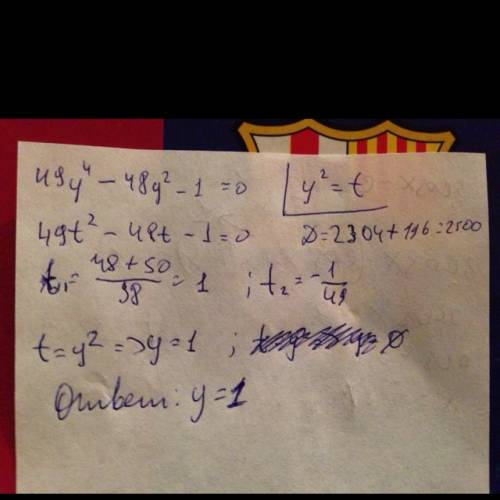 49y⁴ − 48y² − 1 = 0 y² = t
49t² − 48t − 1 = 0 D = 2304 + 196 = 2500
t₁ = (48 + 50)/98 = 1 ; t₂ = −1/49
t = y² => y = 1 ;
Ответ: y = 1